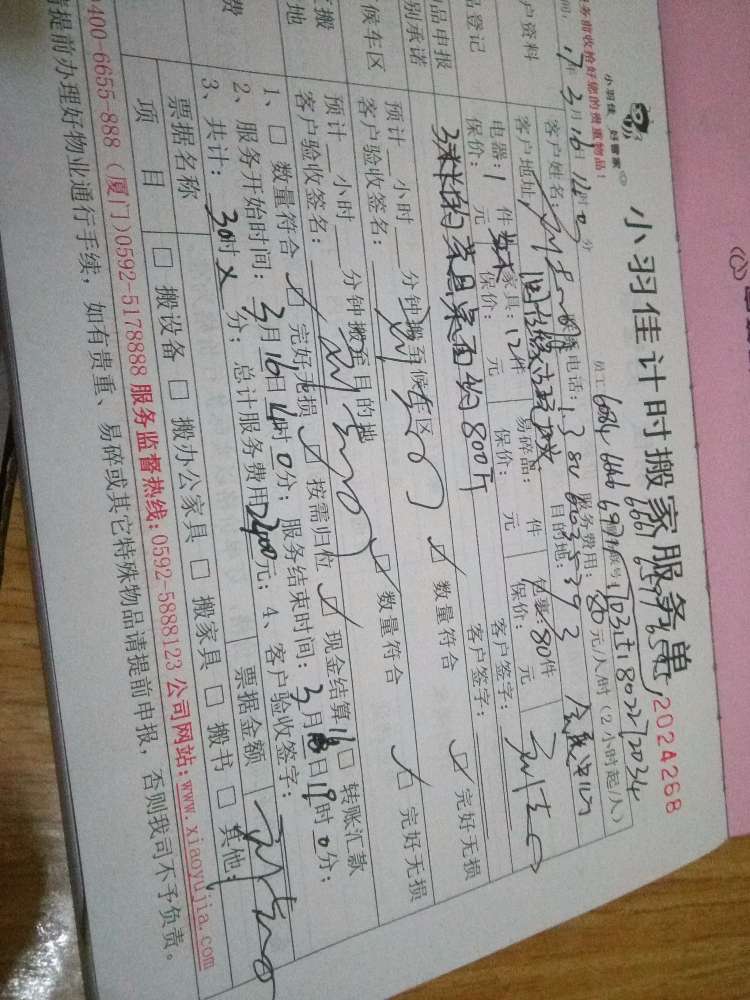 小羽佳 好管家
小羽佳计时搬家服务单
2024268
务前收拾好您的贵重物品！
17年3月16日14时0分
员工
6004 6661
服务费用：80元/人/时（2小时起/人）
户资料
客户姓名：
联系电话：
客户地址：
目的地：
品登记
电器：1件
家具：12件
易碎品： 件
包裹：80件
客户签字：
保价： 元
保价： 元
保价： 元
保价： 元
品申报
别承诺
3米长的茶具桌面约800斤
客户签字：
候车区
预计 小时 分钟搬至候车区
数量符合
完好无损
客户验收签名：
搬
地
预计 小时 分钟搬至目的地
数量符合
完好无损
客户验收签名：
费
1、 数量符合 完好无损 按需归位 现金结算 转账汇款
2、服务开始时间：3月16日14时0分；服务结束时间：3月16日19时0分；
3、共计：30时 分；总计服务费用2400元；4、客户验收签字：
票据名称
票据金额
项目
搬设备 搬办公家具 搬家具 搬书 其他：
请提前办理好物业通行手续，如有贵重、易碎或其它特殊物品请提前申报，否则我司不予负责。
400-6655-888（厦门）0592-5178888 服务监督热线：0592-5888123 公司网站：www.xiaoyujia.com